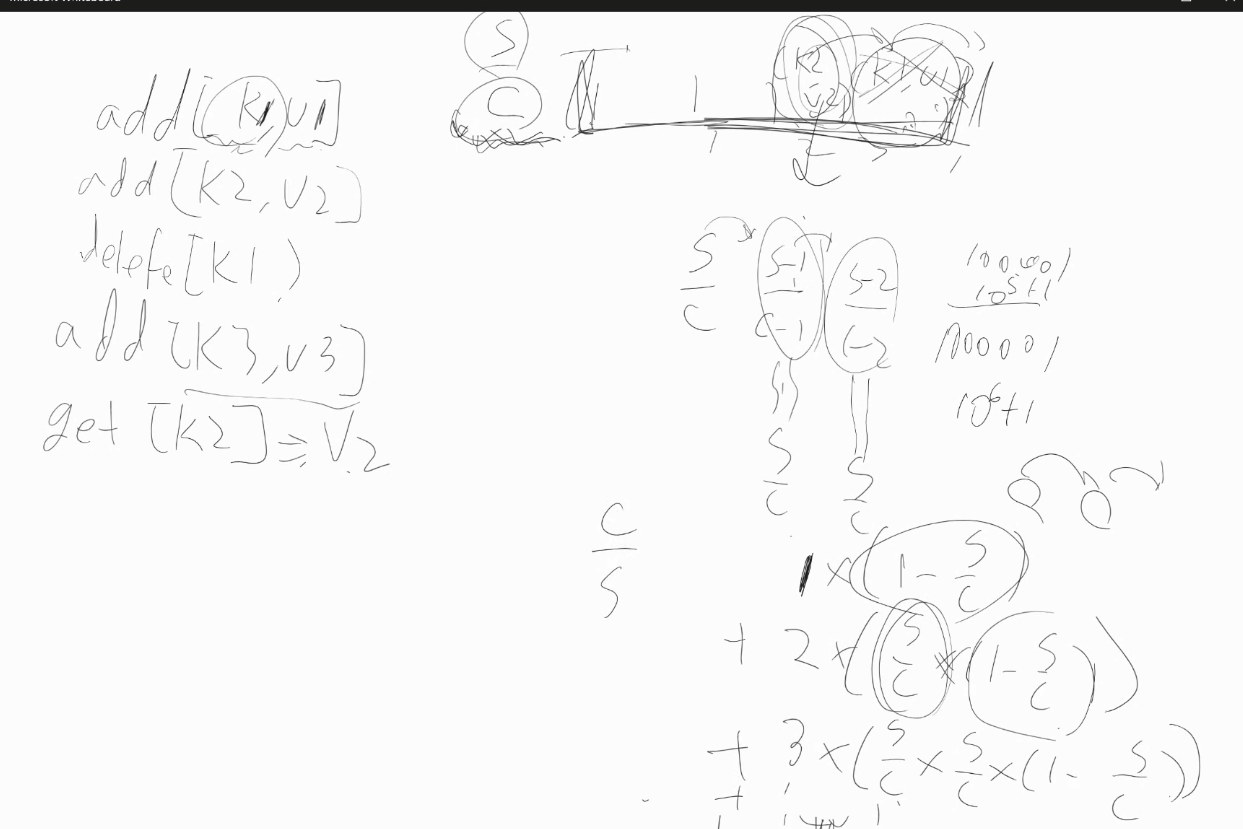 add[k1,v1]
add[k2,v2]
delete[k1)
add[k3,v3]
get[k2] = V2
S
C
1
k2
v2
k1 v1
S
C
S-1
C-1
S-2
C-2
S
C
S
C
100001
10^5+1
100001
10^6+1
C
S
1 × (1 - S/C)
+ 2 × (S/C × (1 - S/C))
+ 3 × (S/C × S/C × (1 - S/C))
+